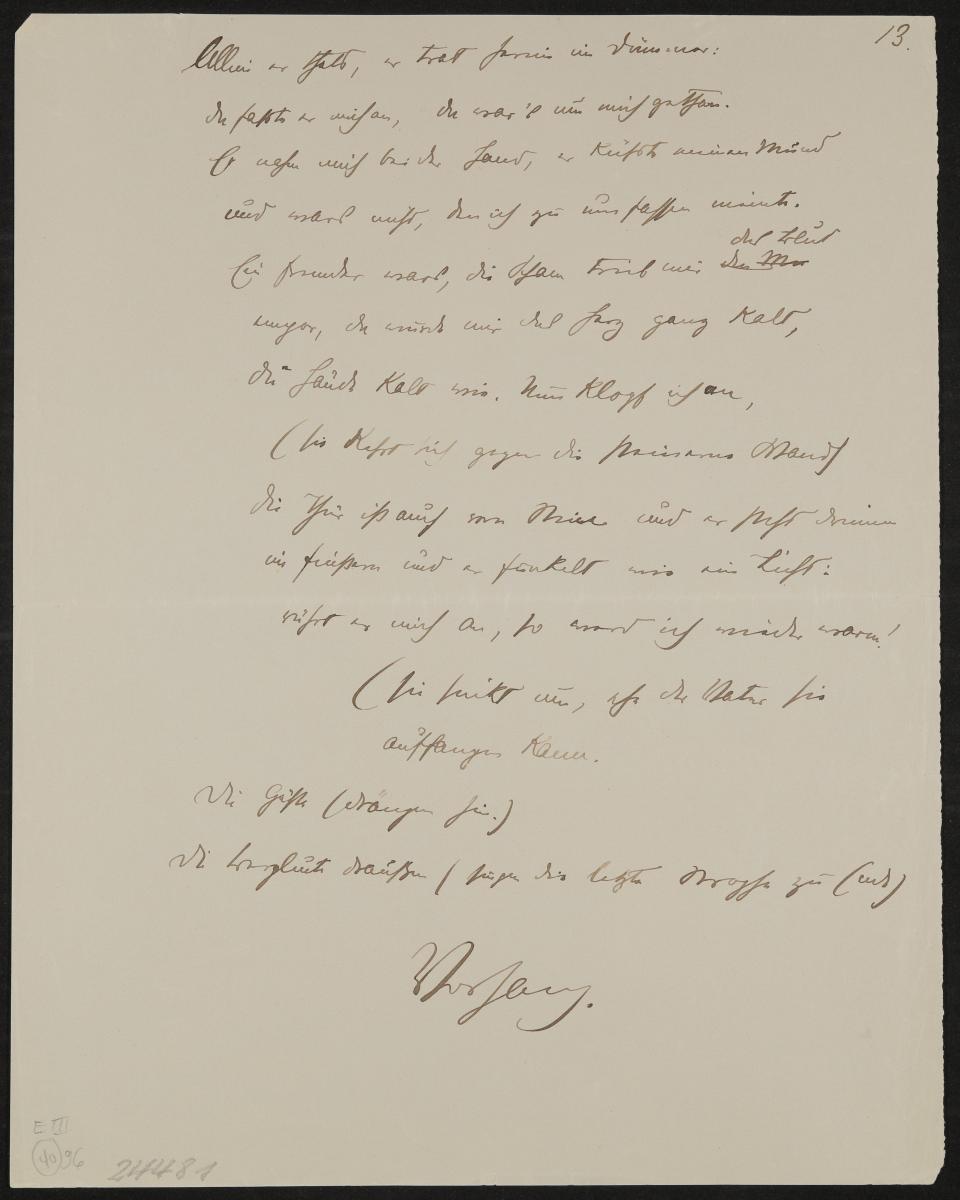 13.
Allein er thats, er trat herein im Dunmer:
da fasste er mich an, da war's um mich gethan.
Er nahm mich bei der Hand, er küsste meinen Mund
und wars nicht, den ich zu umfassen meinte.
das Blut
Ein fremder wars, die Scham trieb mir den Mu
empor, da wurde mir das Herz ganz kalt,
die Hände kalt wie. Nun klopf ich an,
(sie kehrt sich gegen die steinerne Wand)
die Thür ist auf von und er steht drinnen
im finstern und er funkelt wie ein Licht:
rührt er mich an, so werd ich wieder warm!
(sie sinkt um, ehe der Vater sie
auffangen kann.
Die Gäste (drängen hin.)
Die Bergleute draussen (singen die letzte Strophe zu Ende)
Vorhang.
E III
40 96
24481